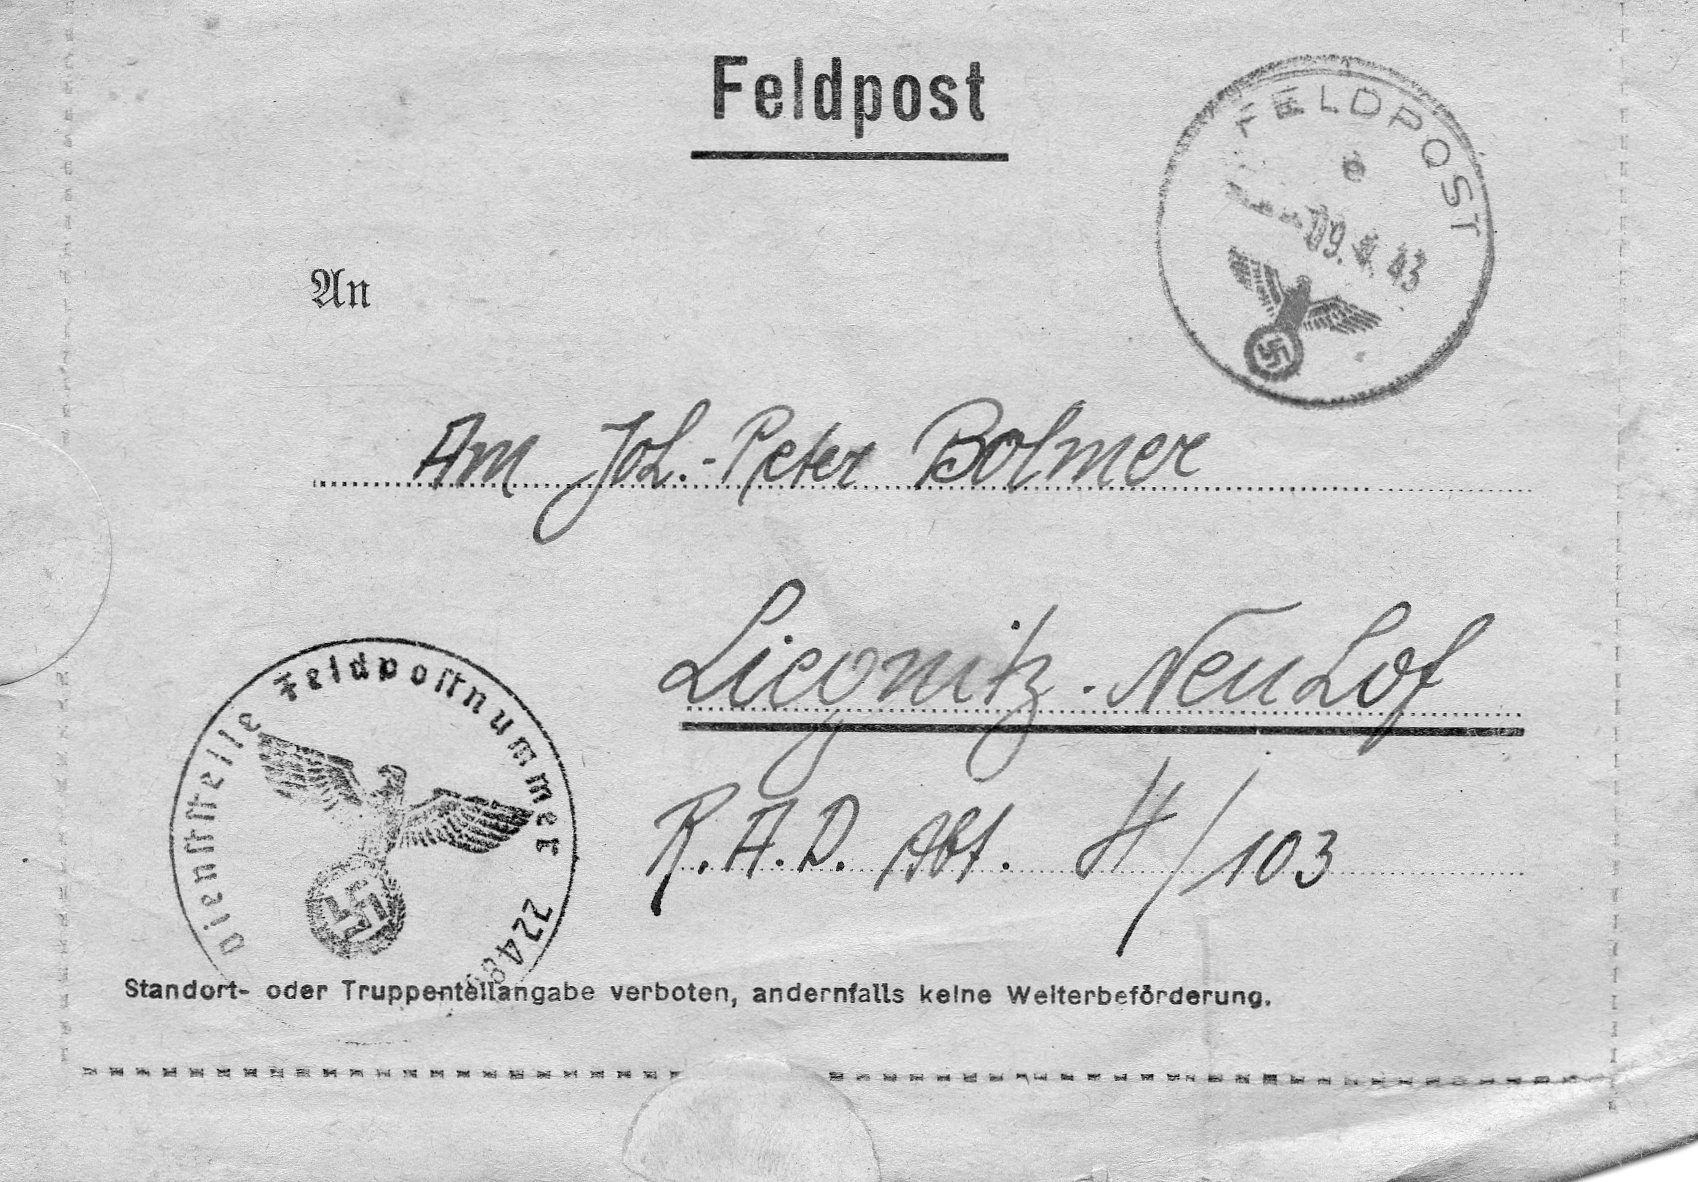 Feldpost
FELDPOST
e
09. 43
An
Am Joh.-Peter Bolmer
Liegnitz-Neuhof
Dienststelle Feldpostnummer 2248
R.A.D. Abt. 4/103
Standort- oder Truppenteilangabe verboten, andernfalls keine Weiterbeförderung.